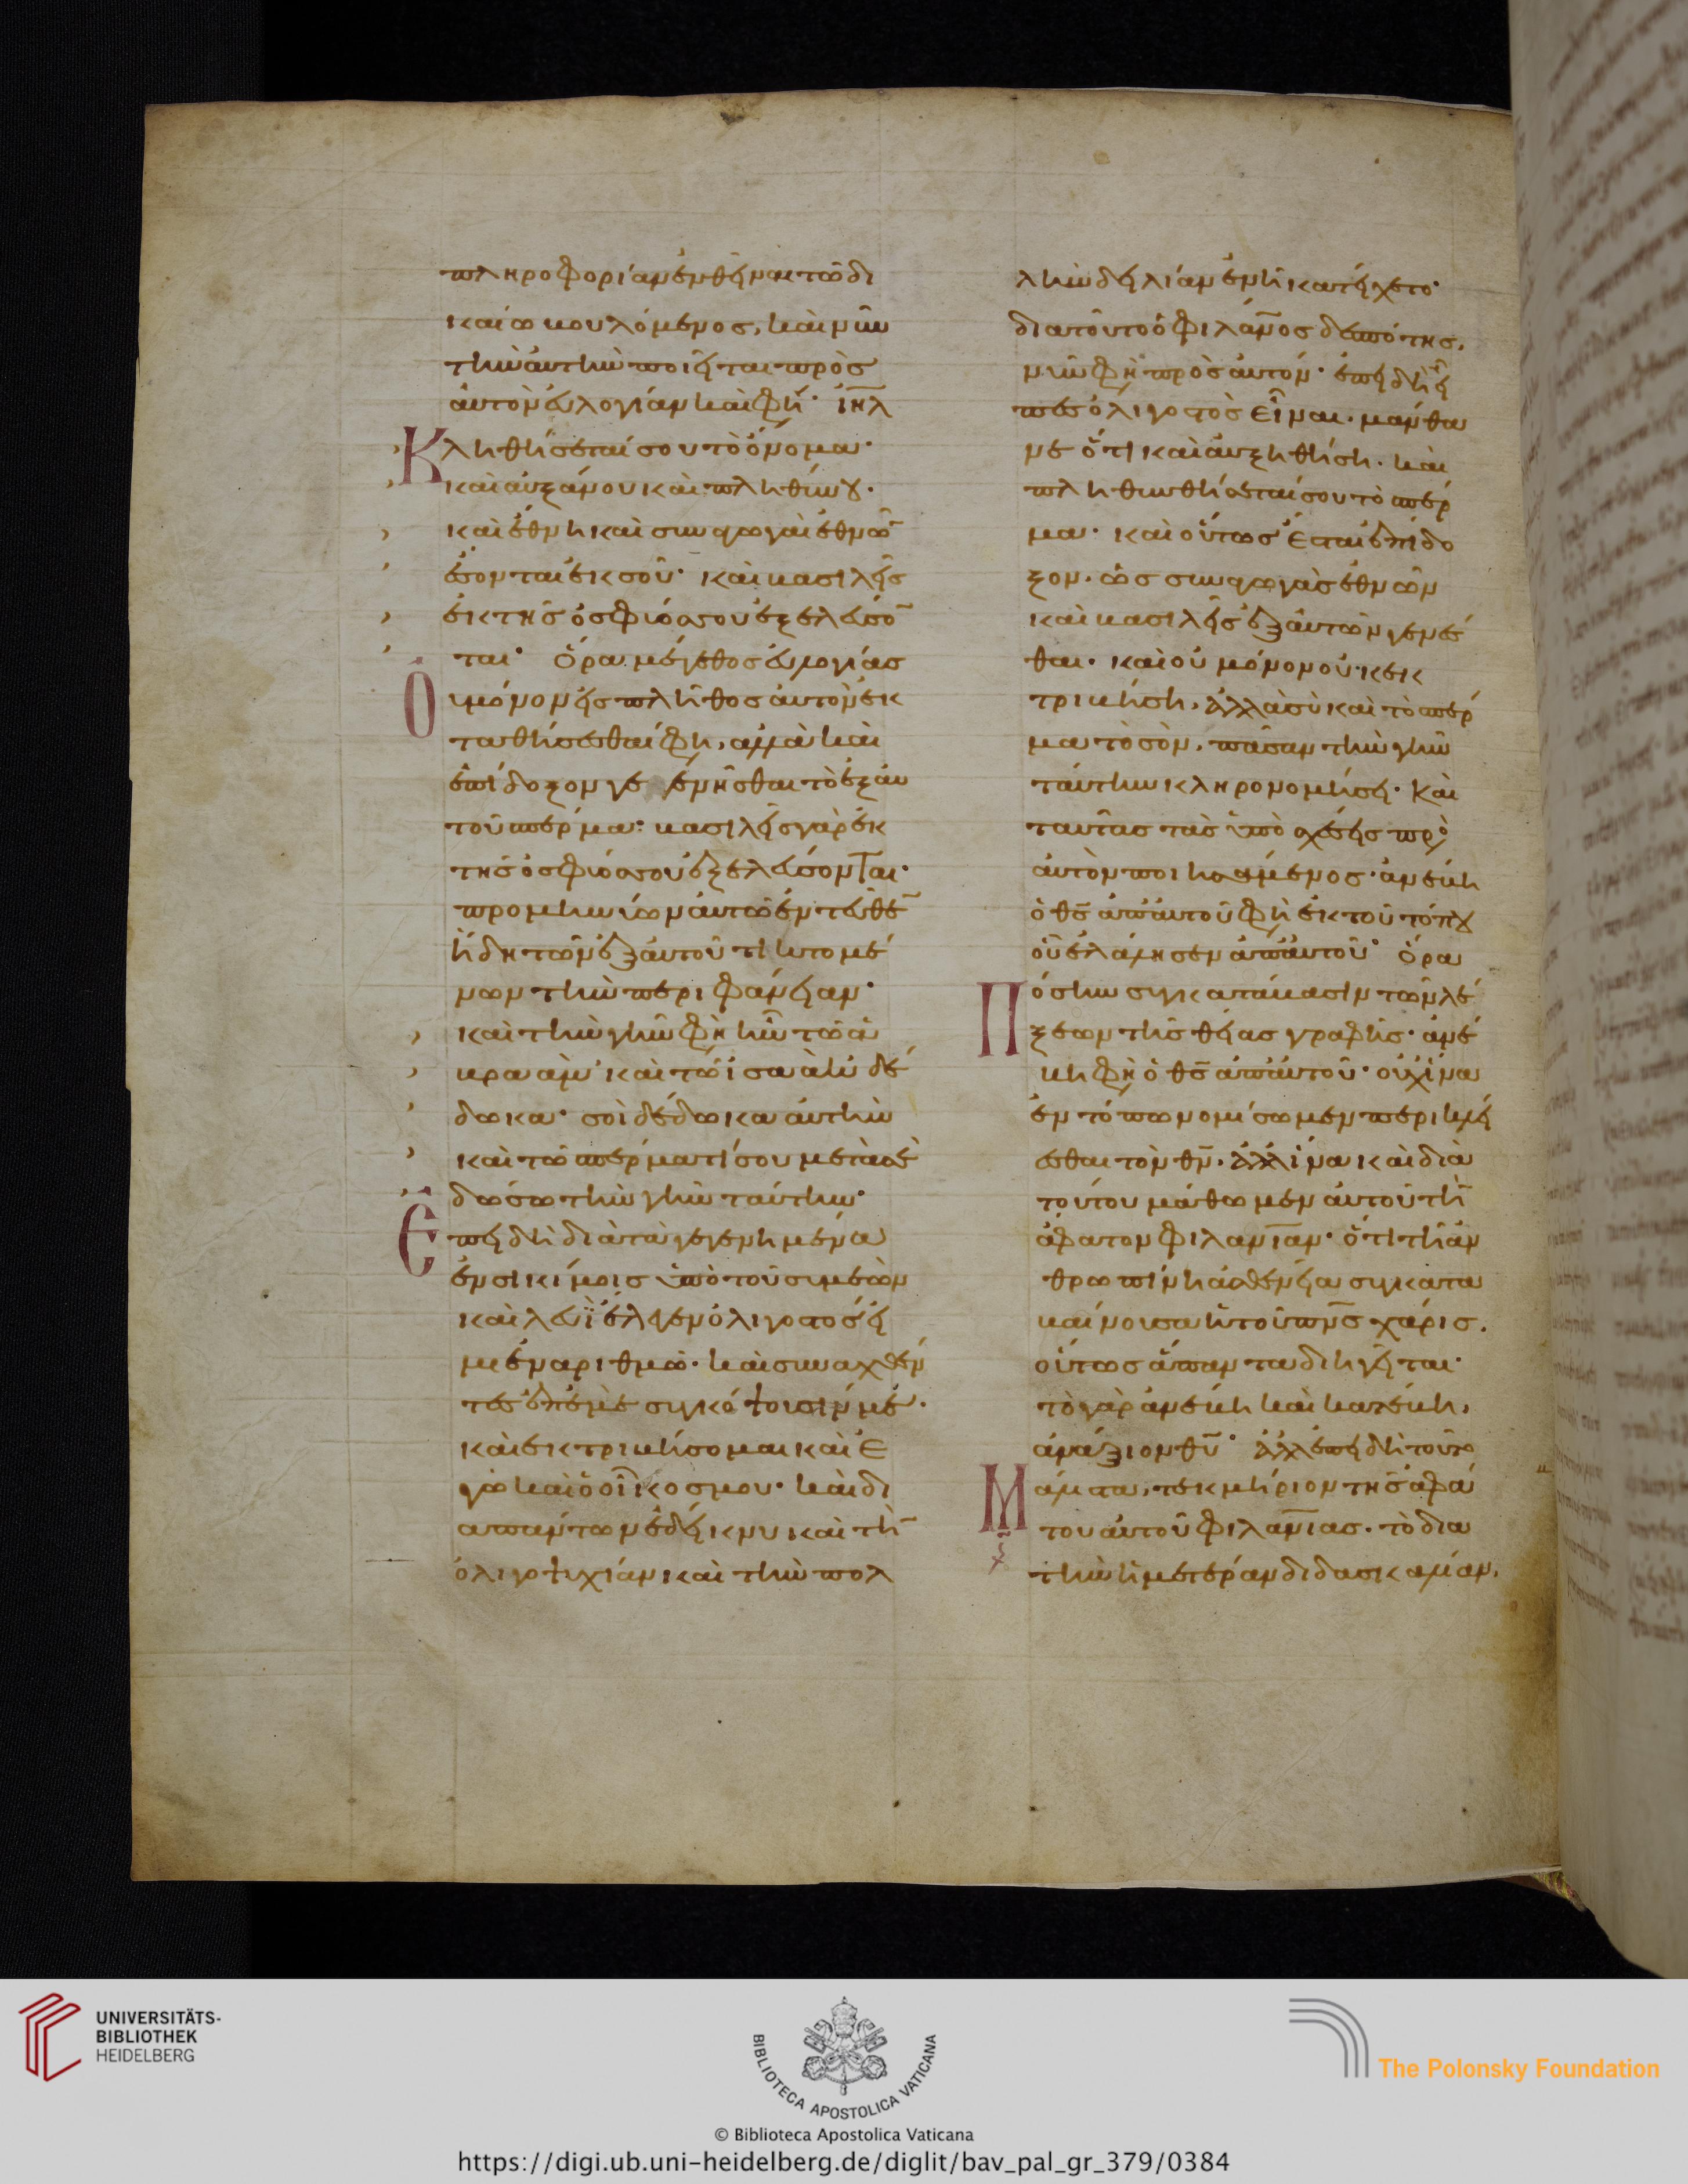 πληροφορίαν ἐνθεῖναι τῶ δι
καίω βουλόμενος, καὶ νῦν
τὴν ἀυτὴν ποιεῖται πρὸς
ἀυτὸν ἐυλογίαν καὶ φη· ἰη̅λ
Κληθήσεταί σου τὸ ὄνομα·
καὶ αὐξάνου καὶ πληθύνου·
καὶ ἔθνη καὶ συναγωγαὶ ἐθνῶ̅
ἔσονται ἐκ σοῦ· καὶ βασιλεῖς
ἐκ τῆς ὀσφύος σου ἐξελεύσο̅
ται· ὅρα μέγεθος ἐυλογίας
Οὐ μόνον εἰς πλῆθος ἀυτὸν ἐκ
ταθήσεσθαί φη, ἀλλὰ καὶ
ἐπίδοξον γεγενῆσθαι τὸ ἐξ ἀυ
τοῦ σπέρμα· βασιλεῖς γὰρ ἐκ
τῆς ὀσφύος σου ἐξελεύσονται·
προμηνύων ἀυτῶ ἐντεῦθε̅
ἤδη τῶν ἐξ ἀυτοῦ τικτομέ
νων τὴν περιφάνειαν·
καὶ τὴν γῆν φὴ ἣν τῶ ἀ
βραὰμ καὶ τῶ ἰσαὰκ δέ
δωκα· σοὶ δέδωκα ἀυτὴν
καὶ τῶ σπέρματί σου μετὰ σὲ
δώσω τὴν γῆν ταύτην·
Ἐπειδὴ διὰ τὰ γεγενημένα
ἐν σικίμοις ὑπὸ τοῦ συμεὼν
καὶ λευῒ ἔλεγεν ὀλιγοστός εἰ
μι ἐν ἀριθμῶ· καὶ συναχθέν
τες ἐπἐμὲ συγκόψουσίν με·
καὶ ἐκτριβήσομαι καὶ ἐ
γὼ καὶ ὁ οἶκος μου· καὶ δι
απάντων ἐδείκνυ καὶ τὴ̅
ὀλιγοψυχίαν καὶ τὴν πολ
λὴν δειλίαν ἐν ἧ κατείχετο·
διατοῦτο ὁ φιλάν̅ος δεσπότης,
νῦν φὴ πρὸς ἀυτόν· ἐπειδὴ εἶ
πες ὀλιγοστὸς εἶναι· μάνθα
νε ὅτι καὶ ἀυξηθήση· καὶ
πληθυνθήσεταί σου τὸ σπέρ
μα· καὶ οὕτως ἔσται ἐπίδο
ξον· ὡς συναγωγὰς ἐθνῶν
καὶ βασιλεῖς ἐξ ἀυτῶν γενέσ
θαι· καὶ οὐ μόνον οὐκ ἐκ
τριβήση, ἀλλὰ σὺ καὶ τὸ σπέρ
μα τὸ σὸν, πᾶσαν τὴν γῆν
ταύτην κληρονομήσει· Καὶ
ταύτας τὰς ὑποσχέσεις πρὸ
ἀυτὸν ποιησάμενος· ἀνέβη
ὁ θ̅ς ἀπ' ἀυτοῦ φὴ ἐκ τοῦ τόπου
οὗ ἐλάλησεν ἀπ' ἀυτοῦ· ὅρα
Πόσην συγκατάβασιν τῶν λέ
ξεων τῆς θείας γραφῆς· ἀνέ
βη φὴ ὁ θ̅ς ἀπ' ἀυτοῦ· οὐχ ἵνα
ἐν τόπω νομίσωμεν περικλεί
εσθαι τὸν θ̅ν· ἀλλ' ἵνα καὶ διὰ
τούτου μάθωμεν ἀυτοῦ τὴ̅
ἄφατον φιλαν̅ίαν· ὅτι τῆ ἀν
θρωπίνη ἀσθενεία συγκατα
βαίνουσα ἡ τοῦ πν̅ς χάρις,
οὕτως ἅπαντα διηγεῖται·
τὸ γὰρ ἀνέβη καὶ κατέβη,
ἀνάξιον θ̅υ· ἀλλ' ἐπειδὴ τοῦτο
Μάλιστα, τεκμήριον τῆς ἀφά
του ἀυτοῦ φιλαν̅ίας· τὸ δια
τὴν ἡμετέραν διδασκαλίαν,
UNIVERSITÄTS-
BIBLIOTHEK
HEIDELBERG
BIBLIOTECA APOSTOLICA VATICANA
© Biblioteca Apostolica Vaticana
The Polonsky Foundation
https://digi.ub.uni-heidelberg.de/diglit/bav_pal_gr_379/0384